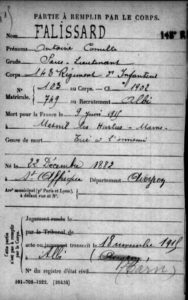 PARTIE À REMPLIR PAR LE CORPS.
FALISSARD
Prénoms Antoine Camille
Grade Sous-Lieutenant
Corps 143e Régiment d'Infanterie
N° 103 au Corps. — Cl. 1902
Matricule. 749 au Recrutement Albi
Mort pour la France le 9 juin 1915
à Mesnil les Hurlus - Marne
Genre de mort Tué à l'ennemi
Né le 22 Décembre 1882
à St Affrique Département Aveyron
Arr' municipal (pr Paris et Lyon),
à défaut rue et N°.
Jugement rendu le
par le Tribunal de
acte ou jugement transcrit le 18 novembre 1915
à Albi
N° du registre d'état civil
101-708-1922. [26434]